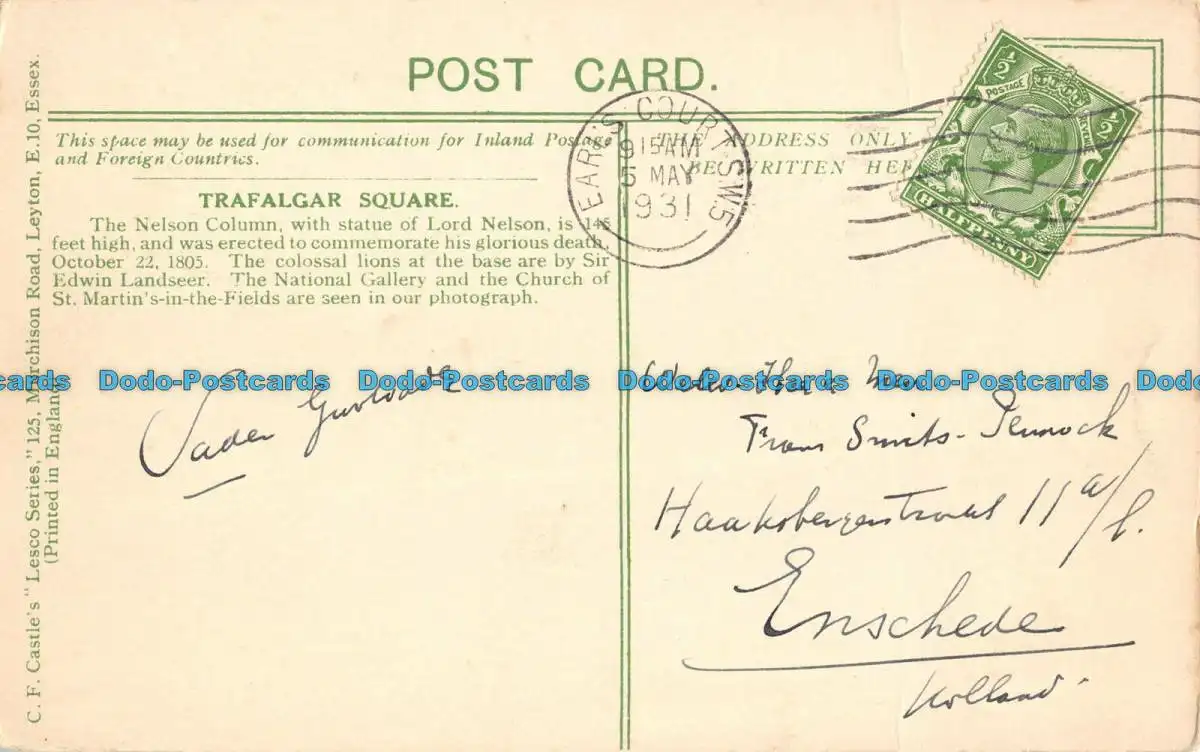 POST CARD.
This space may be used for communication for Inland Postage
and Foreign Countries.
TRAFALGAR SQUARE.
The Nelson Column, with statue of Lord Nelson, is 145
feet high, and was erected to commemorate his glorious death,
October 22, 1805. The colossal lions at the base are by Sir
Edwin Landseer. The National Gallery and the Church of
St. Martin's-in-the-Fields are seen in our photograph.
C. F. Castle's "Lesco Series," 125, Murchison Road, Leyton, E.10, Essex.
(Printed in England)
THE ADDRESS ONLY
BE WRITTEN HER
EARL'S COURT S.W.5
9 15 AM
5 MAY
1931
½ ½
POSTAGE REVENUE
HALFPENNY
Vader
Frans Smits-
Haaksbergerstraat 11 a/b.
Enschede
Holland
Dodo-Postcards Dodo-Postcards Dodo-Postcards Dodo-Postcards